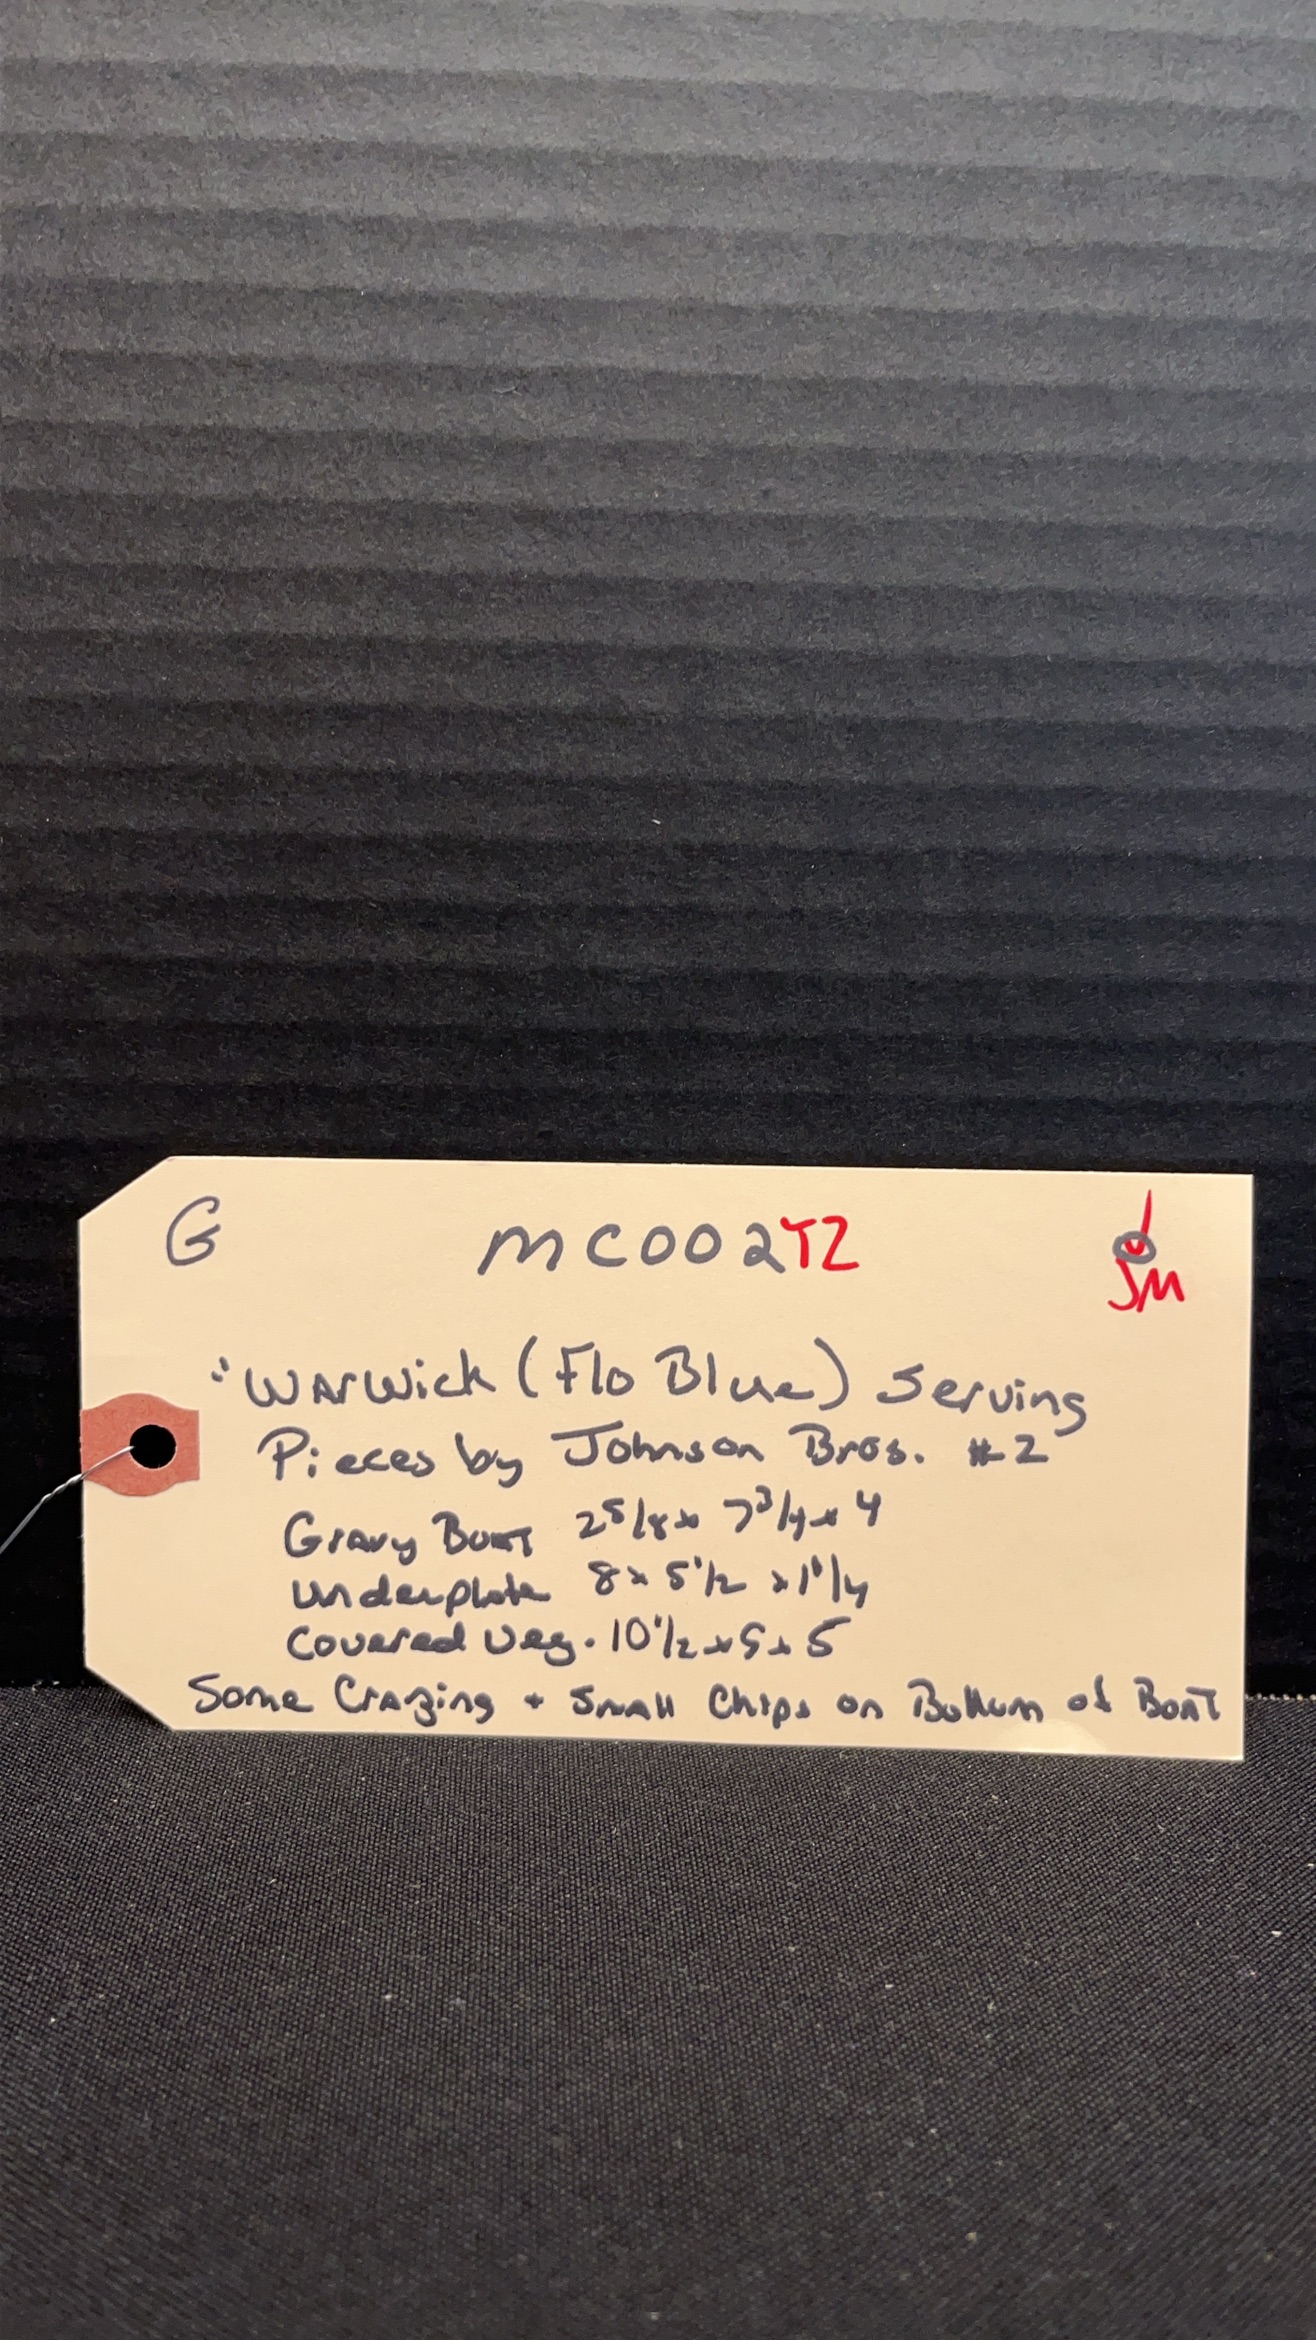 G MC002TZ JM
"Warwick (Flo Blue) Serving
Pieces by Johnson Bros. #2
Gravy Boat 2 5/8 x 7 3/4 x 4
Underplate 8 x 5 1/2 x 1 1/4
Covered Veg. 10 1/2 x 5 x 5
Some Crazing + Small Chips on Bottom of Boat